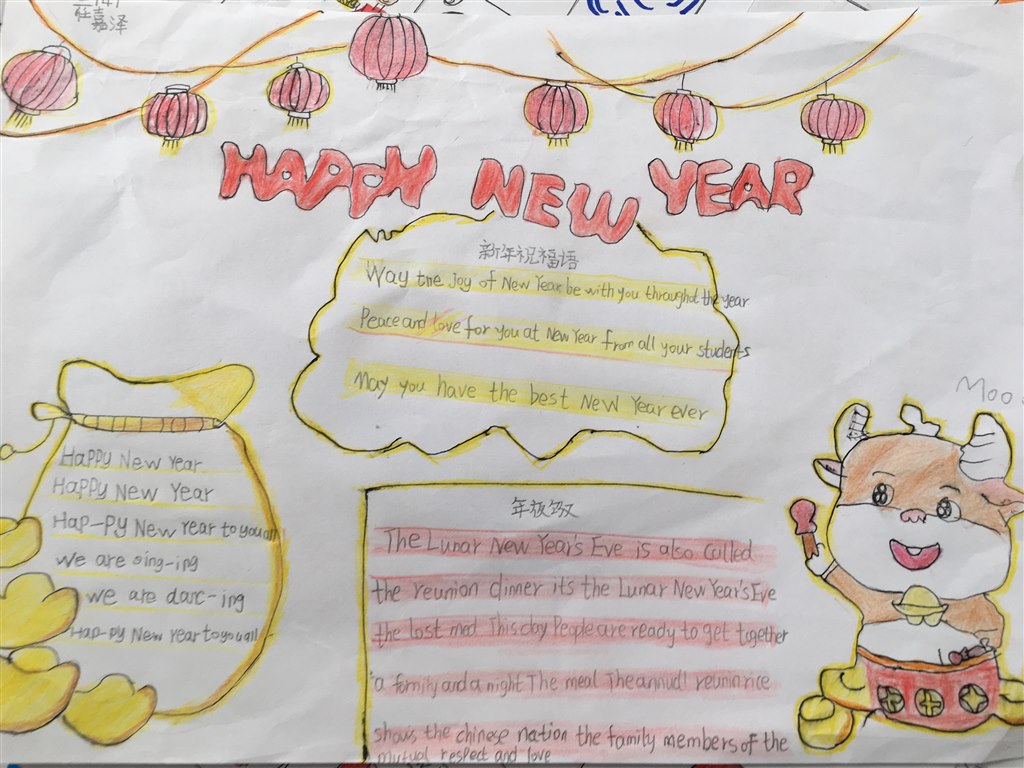 任嘉泽
HAPPY NEW YEAR
新年祝福语
Way the joy of New Year be with you throughot the year
Peace and love for you at New Year from all your students
May you have the best New Year ever
Moo
HaPPy New Year
HaPPy New Year
Hap-Py New Year to you all
We are sing-ing
we are danc-ing
Hap-py New Year to you all
年夜饭
The Lunar New Year's Eve is also Culled
the reunion dinner its the Lunar New Year's Eve
the last med This day People are ready to get together
a family and a night The meal The annudl reunin rice
shows the chinese nation the family members of the
mutual respect and love